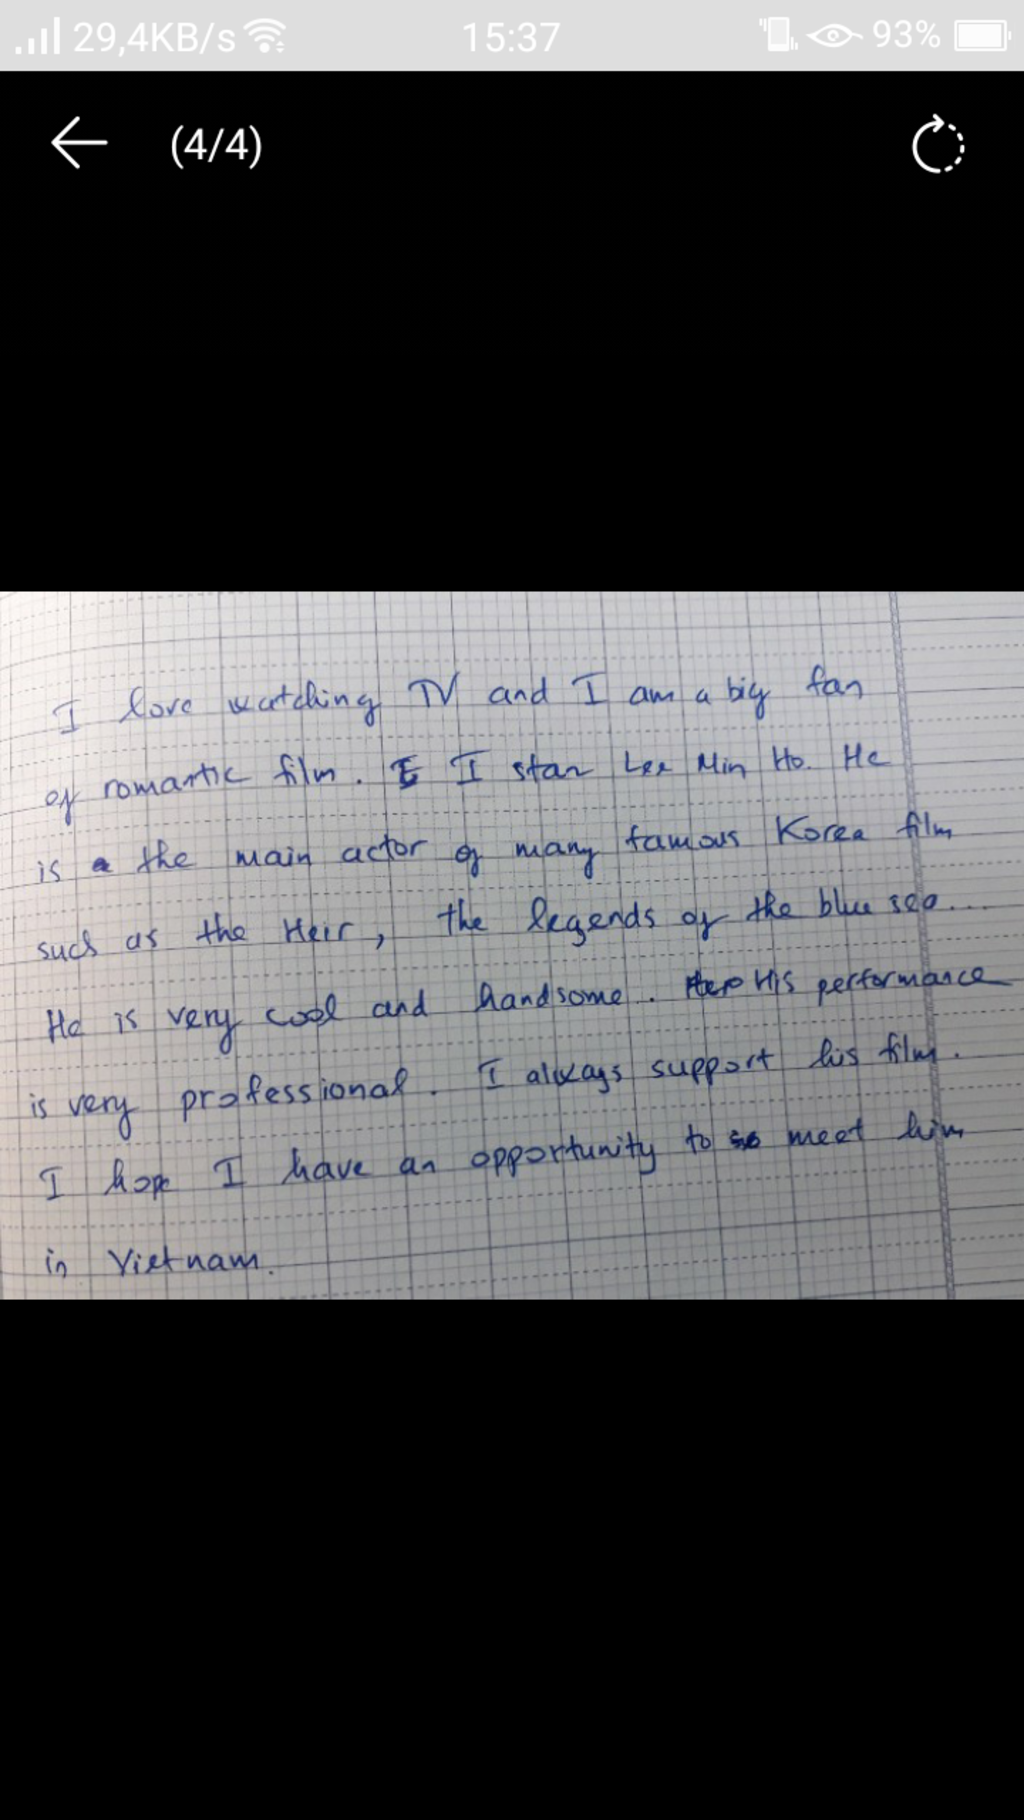 29,4KB/s 15:37 93%
(4/4)
I love watching TV and I am a big fan
of romantic film. I stan Lee Min Ho. He
is the main actor of many famous Korea film
such as the Heir, the legends of the blue sea...
He is very cool and handsome. His performance
is very professional. I always support his film.
I hope I have an opportunity to meet him
in Vietnam.